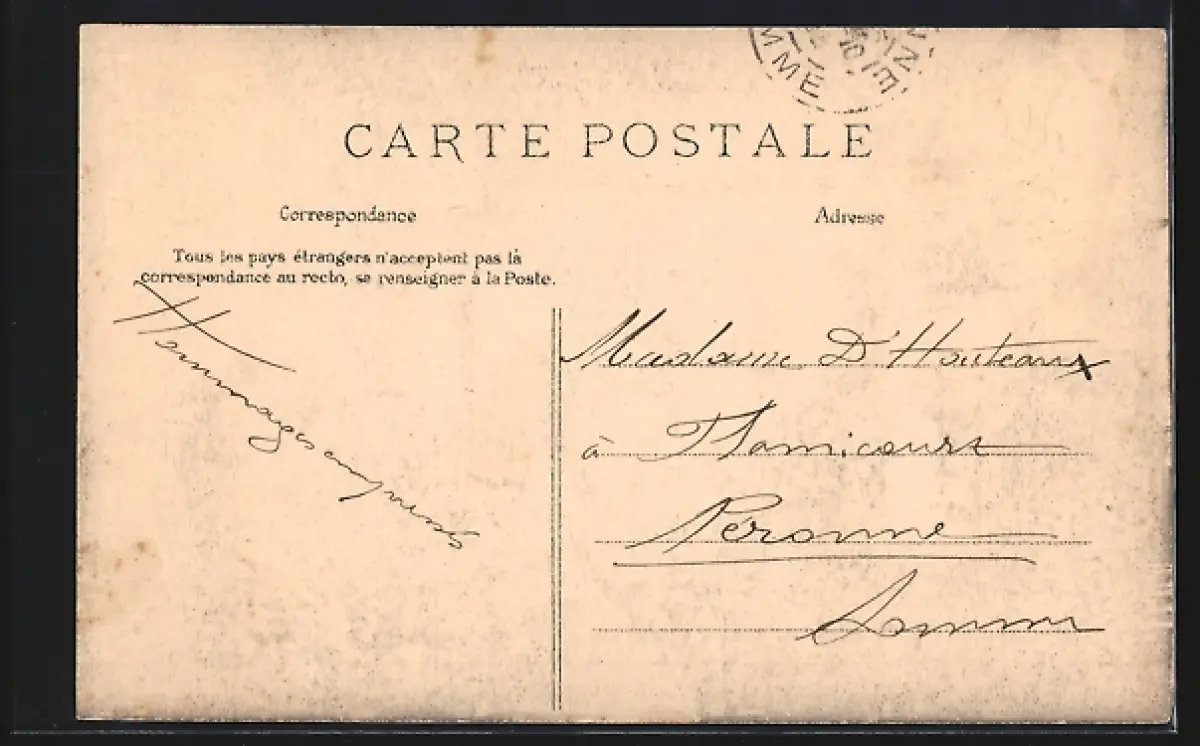 MME NNE
CARTE POSTALE
Correspondance
Adresse
Tous les pays étrangers n'acceptent pas la
correspondance au recto, se renseigner à la Poste.
Hommages empressés
Madame D'Hauteaux
à Flamicourt
Péronne
Somme